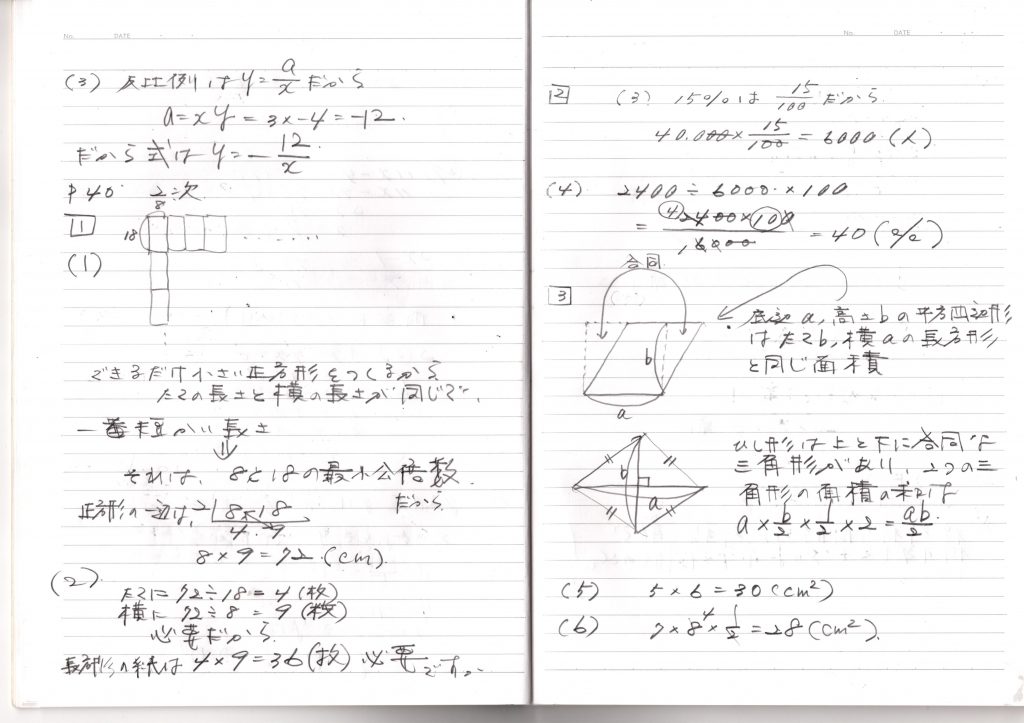 No. DATE
(3) 反比例は y=a/x だから
a=xy=3×-4=-12.
だから式は y=-12/x
P40 2次
1
8
18
……
(1)
できるだけ小さい正方形をつくるから
たての長さと横の長さが同じで、
一番短かい長さ
⇓
それは、8と18の最小公倍数
だから
正方形の一辺は、2) 8×18
4 9
8×9=72(cm)
(2)
たてに 72÷18=4(枚)
横に 72÷8=9(枚)
必要だから
長方形の紙は 4×9=36(枚)必要です。
No. DATE
2 (3) 15%は 15/100 だから
40.000×15/100=6000(人)
(4) 2400÷6000×100
=2400×100/6000=40(%)
4
1
合同
3
底辺a,高さbの平方四辺形
はたてb,横aの長方形
と同じ面積
b
a
ひし形は上と下に合同な
三角形があり、2つの三
角形の面積の和は
a×b/2×1/2×2=ab/2
b
a
(5) 5×6=30(cm²)
(6) 7×8×1/2=28(cm²)
4